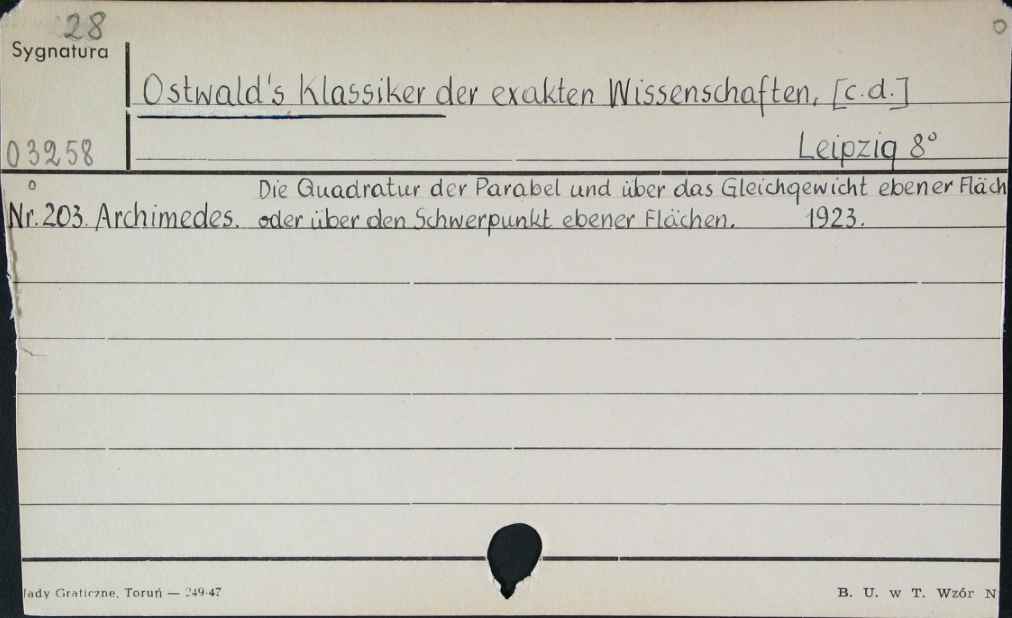 28
Sygnatura
Ostwald's Klassiker der exakten Wissenschaften, [c.d.]
03258
Leipzig 8°
Die Quadratur der Parabel und über das Gleichgewicht ebener Fläch
Nr. 203. Archimedes. oder über den Schwerpunkt ebener Flächen. 1923.
łady Graficzne, Toruń — 249-47
B. U. w T. Wzór N